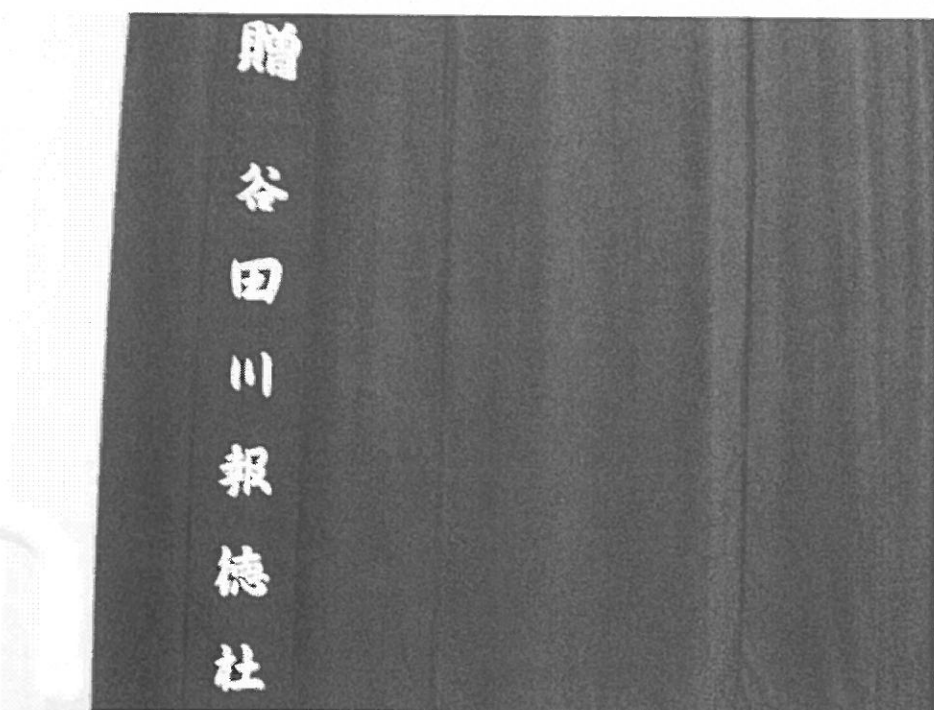 贈 谷田川報徳社